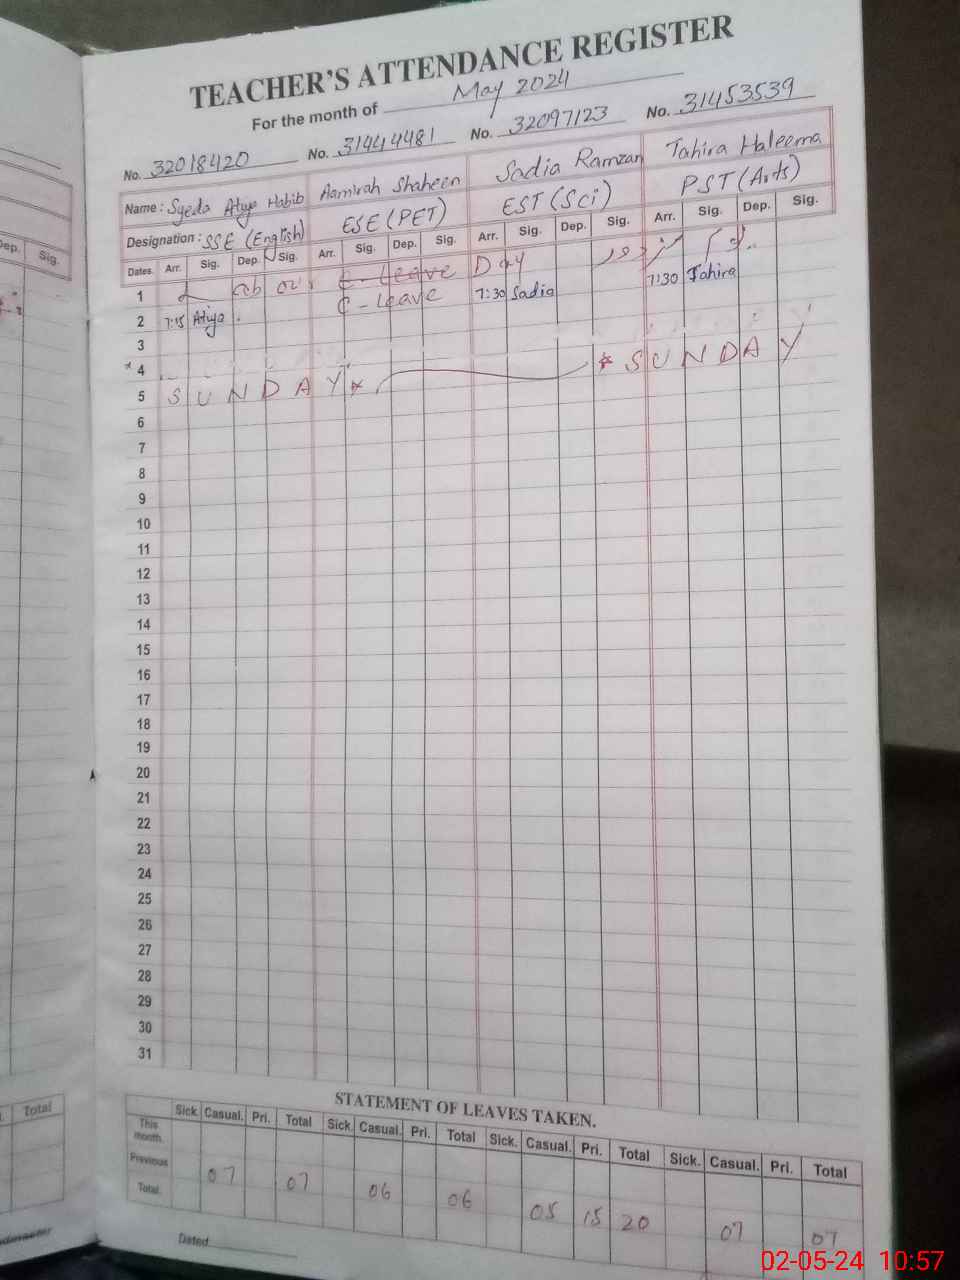 TEACHER'S ATTENDANCE REGISTER
For the month of May 2024
No. 32018420 No. 31444481 No. 32097123 No. 31453539
Name : Syeda Atiya Habib Aamirah Shaheen Sadia Ramzan Tahira Haleema
Designation : SSE (English) ESE (PET) EST (Sci) PST (Arts)
Dates. Arr. Sig. Dep. Sig. Arr. Sig. Dep. Sig. Arr. Sig. Dep. Sig. Arr. Sig. Dep. Sig.
1 L ab ou C - Leave Day
2 7:15 Atiya C - Leave 7:30 Sadia 7:30 Tahira
3
4
5 SUNDAY SUNDAY
6
7
8
9
10
11
12
13
14
15
16
17
18
19
20
21
22
23
24
25
26
27
28
29
30
31
STATEMENT OF LEAVES TAKEN.
Sick. Casual. Pri. Total Sick. Casual. Pri. Total Sick. Casual. Pri. Total Sick. Casual. Pri. Total
This month.
Previous
Total. 07 07 06 06 05 15 20 07 07
Dated
Dep. Sig.
Total
02-05-24 10:57